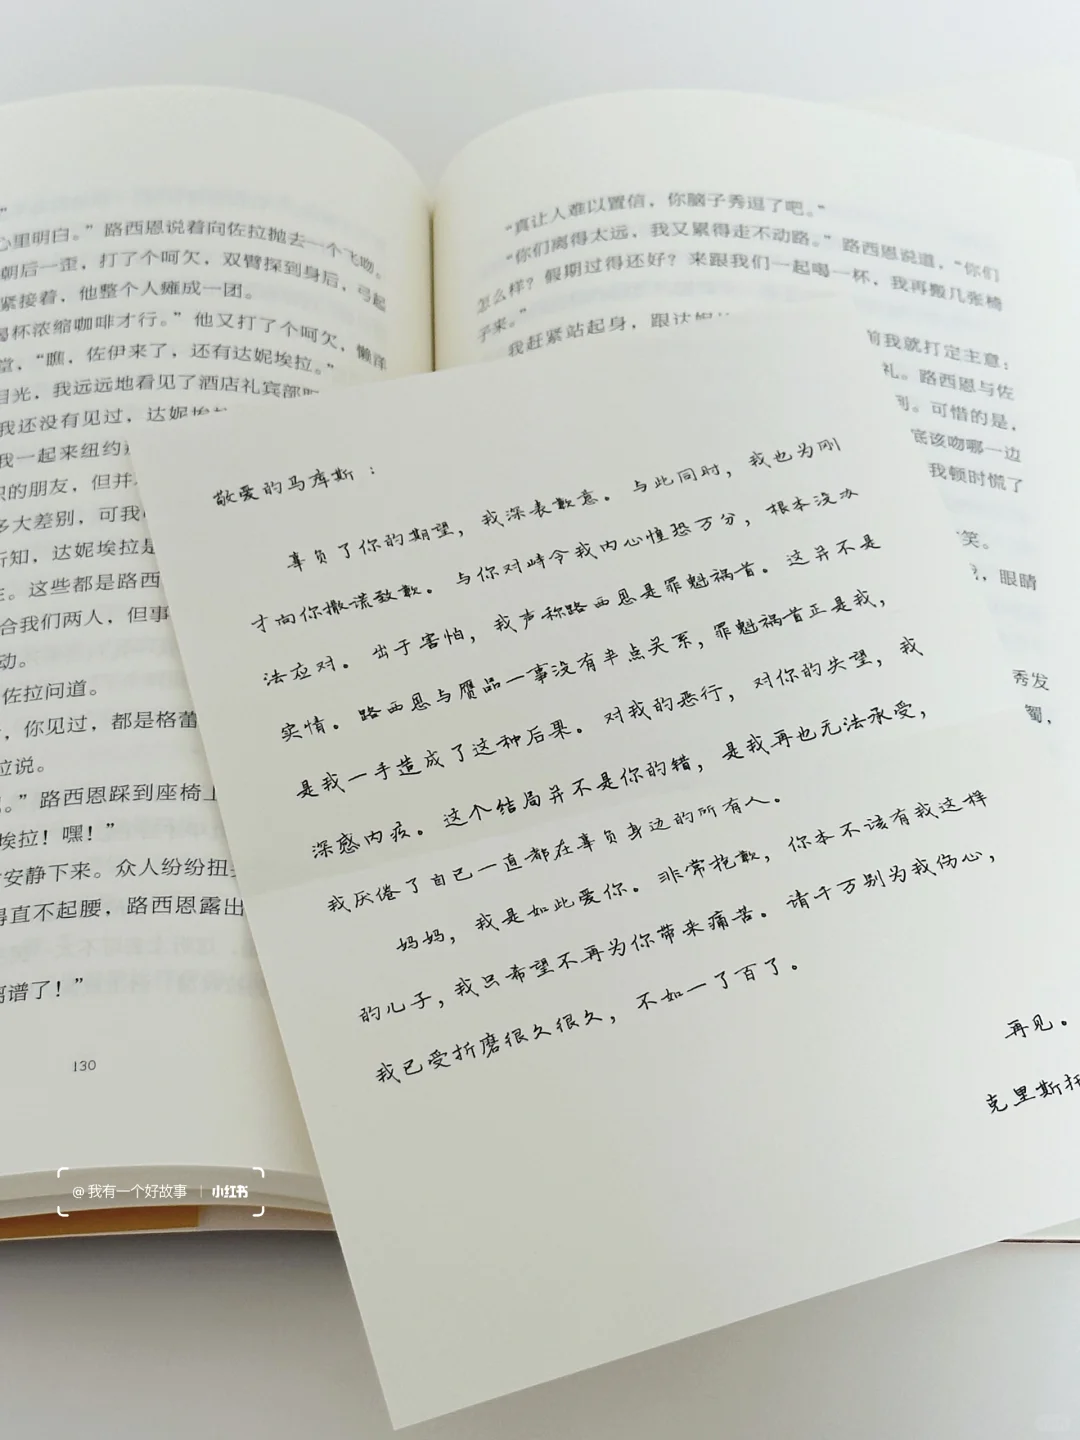 ”
心里明白。”路西恩说着向佐拉抛去一个飞吻。
朝后一歪，打了个呵欠，双臂探到身后，弓起
紧接着，他整个人瘫成一团。
喝杯浓缩咖啡才行。”他又打了个呵欠，懒洋
堂，“瞧，佐伊来了，还有达妮埃拉。”
目光，我远远地看见了酒店礼宾部
我还没有见过，达妮埃
我一起来纽约
识的朋友，但并
多大差别，可我
所知，达妮埃拉是
。这些都是路西
合我们两人，但事
动。
佐拉问道。
，你见过，都是格蕾
拉说。
。”路西恩踩到座椅上
埃拉！嘿！”
安静下来。众人纷纷扭
得直不起腰，路西恩露出
离谱了！”
130
“真让人难以置信，你脑子秀逗了吧。”
“你们离得太远，我又累得走不动路。”路西恩说道，“你们
怎么样？假期过得还好？来跟我们一起喝一杯，我再搬几张椅
子来。”
我赶紧站起身，跟达妮
前我就打定主意：
礼。路西恩与佐
。可惜的是，
底该吻哪一边
我顿时慌了
笑。
，眼睛
秀发
蜀，
敬爱的马库斯：
辜负了你的期望，我深表歉意。与此同时，我也为刚
才向你撒谎致歉。与你对峙令我内心惶恐万分，根本没办
法应对。出于害怕，我声称路西恩是罪魁祸首。这并不是
实情。路西恩与赝品一事没有半点关系，罪魁祸首正是我，
是我一手造成了这种后果。对我的恶行，对你的失望，我
深感内疚。这个结局并不是你的错，是我再也无法承受，
我厌倦了自己一直都在辜负身边的所有人。
妈妈，我是如此爱你。非常抱歉，你本不该有我这样
的儿子，我只希望不再为你带来痛苦。请千万别为我伤心，
我已受折磨很久很久，不如一了百了。
再见。
克里斯托
@我有一个好故事 | 小红书